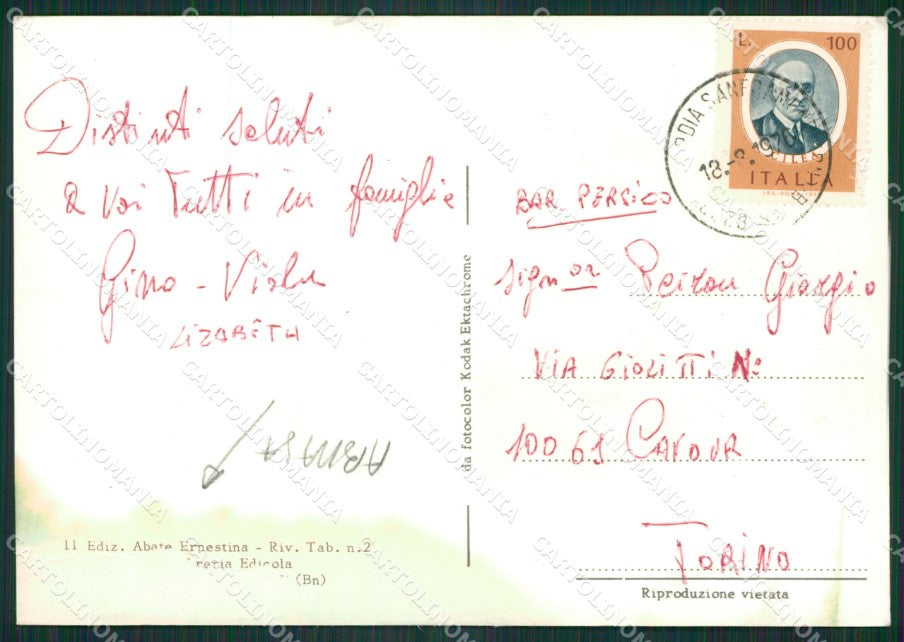 Distinti saluti
a voi tutti in famiglia
Gino - Viola
LIZABETH
11 Ediz. Abate Ernestina - Riv. Tab. n.2
Edicola
(Bn)
da fotocolor Kodak Ektachrome
L. 100
ITALIA
18-8-1976
BAR PERSICO
Signor Peiron Giorgio
VIA GIOLITTI N°
10061 CAVOUR
TORINO
Riproduzione vietata
CARTOLINOMANIA